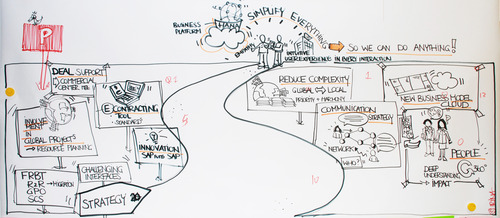 BUSINESS
PLATFORM
HANA
SIMPLIFY EVERYTHING
INTUITIVE
USER EXPERIENCE IN EVERY INTERACTION
SO WE CAN DO ANYTHING!
P
DEAL SUPPORT
COMMERCIAL
CENTER
E CONTRACTING
TOOL
STANDARDS
INVOLVE
MENT
IN
GLOBAL PROJECTS
→ RESOURCE PLANNING
INNOVATION
SAP SAP
FRBT
R2R → MIGRATION
GPO
SCS
CHALLENGING
INTERFACES
STRATEGY
REDUCE COMPLEXITY
GLOBAL LOCAL
PRIORITY + HARMONY
COMMUNICATION
STRATEGY
NETWORK
WHO?
NEW BUSINESS MODEL
CLOUD
PEOPLE
DEEP
UNDERSTANDING
360°
→ IMPACT